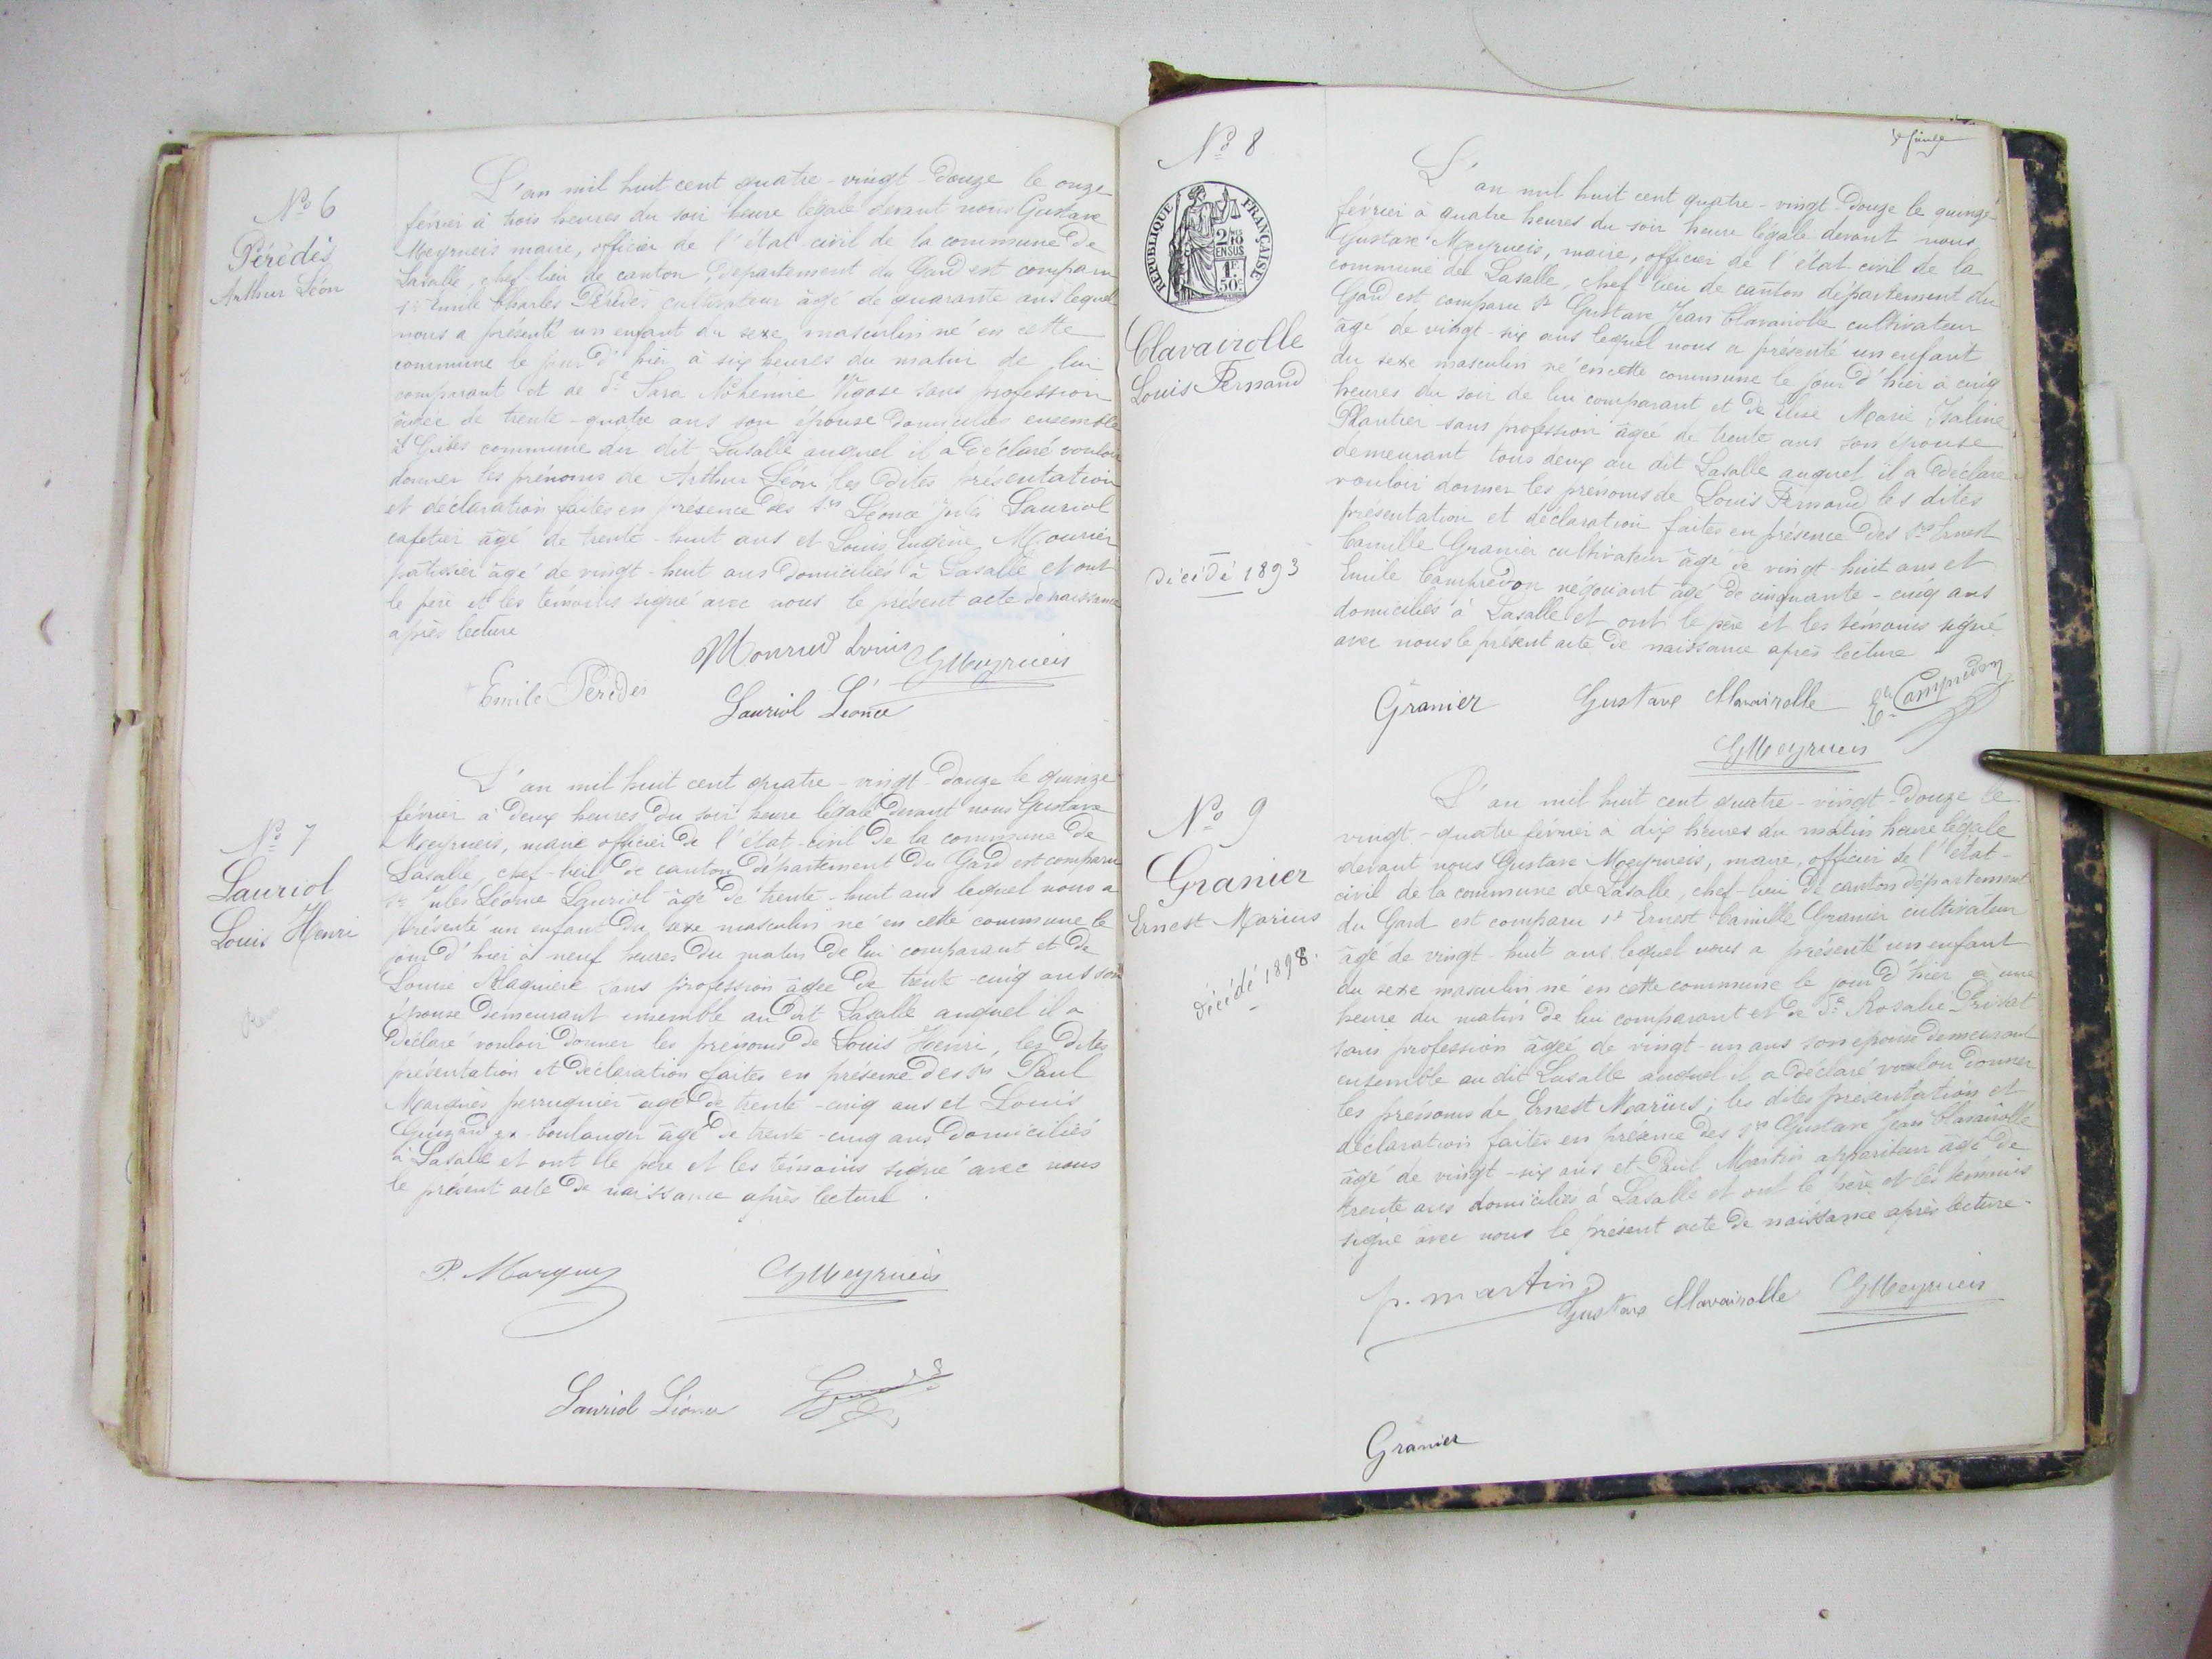 N° 6
Pérédès
Arthur Léon
L'an mil huit cent quatre-vingt-douze le onze
février à trois heures du soir heure légale devant nous Gustave
Meyrueis maire, officier de l'état-civil de la commune de
Lasalle, chef-lieu de canton, département du Gard est comparu
sr Emile Charles Pérédès cultivateur âgé de quarante ans lequel
nous a présenté un enfant du sexe masculin né en cette
commune le jour d'hier à six heures du matin de lui
comparant et de de Sara Nohémie Vigase sans profession
âgée de trente-quatre ans son épouse domiciliés ensemble
à commune du dit Lasalle auquel il a déclaré vouloir
donner les prénoms de Arthur Léon, les dites présentation
et déclaration faites en présence des srs Léonce Jules Lauriol
cafetier âgé de trente-huit ans et Louis Eugène Mourier
patissier âgé de vingt-huit ans domiciliés à Lasalle et ont
le père et les témoins signé avec nous le présent acte de naissance
après lecture
Mourier Louis GMeyrueis
Emile Pérédès
Lauriol Léonce
N° 7
Lauriol
Louis Henri
L'an mil huit cent quatre-vingt-douze le quinze
février à deux heures du soir heure légale devant nous Gustave
Meyrueis, maire officier de l'état-civil de la commune de
Lasalle, chef-lieu de canton département du Gard est comparu
sr Jules Léonce Lauriol âgé de trente-huit ans lequel nous a
présenté un enfant du sexe masculin né en cette commune le
jour d'hier à neuf heures du matin de lui comparant et de
Louise sans profession âgée de trente-cinq ans son
épouse demeurant ensemble au dit Lasalle auquel il a
déclaré vouloir donner les prénoms de Louis Henri, les dites
présentation et déclaration faites en présence des srs Paul
Marquès perruquier âgé de trente-cinq ans et Louis
boulanger âgé de trente-cinq ans domiciliés
à Lasalle et ont le père et les témoins signé avec nous
le présent acte de naissance après lecture.
P. Marques GMeyrueis
Lauriol Léonce
N° 8
RÉPUBLIQUE FRANÇAISE
2/10
EN SUS
1F.
50c
Clavairolle
Louis Fernand
décédé 1893
L'an mil huit cent quatre-vingt-douze le quinze
février à quatre heures du soir heure légale devant nous
Gustave Meyrueis, maire, officier de l'état-civil de la
commune de Lasalle, chef-lieu de canton département du
Gard est comparu sr Gustave Jean Clavairolle cultivateur
âgé de vingt-six ans lequel nous a présenté un enfant
du sexe masculin né en cette commune le jour d'hier à cinq
heures du soir de lui comparant et de Elise Marie Isaline
Plantier sans profession âgée de trente ans son épouse
demeurant tous deux au dit Lasalle auquel il a déclaré
vouloir donner les prénoms de Louis Fernand les dites
présentation et déclaration faites en présence des srs Ernest
Camille Granier cultivateur âgé de vingt-huit ans et
Emile Campredon négociant âgé de cinquante-cinq ans
domiciliés à Lasalle et ont le père et les témoins signé
avec nous le présent acte de naissance après lecture
Granier Gustave Clavairolle Ele Campredon
GMeyrueis
N° 9
Granier
Ernest Marius
décédé 1898.
L'an mil huit cent quatre-vingt-douze le
vingt-quatre février à dix heures du matin heure légale
devant nous Gustave Meyrueis, maire, officier de l'état-
civil de la commune de Lasalle, chef-lieu de canton département
du Gard est comparu sr Ernest Camille Granier cultivateur
âgé de vingt-huit ans lequel nous a présenté un enfant
du sexe masculin né en cette commune le jour d'hier à une
heure du matin de lui comparant et de de Rosalie Privat
sans profession âgée de vingt-un ans son épouse demeurant
ensemble au dit Lasalle auquel il a déclaré vouloir donner
les prénoms de Ernest Marius; les dites présentation et
déclaration faites en présence des srs Gustave Jean Clavairolle
âgé de vingt-six ans et Paul Martin appariteur âgé de
trente ans domiciliés à Lasalle et ont le père et les témoins
signé avec nous le présent acte de naissance après lecture.
p. martin Gustave Clavairolle GMeyrueis
Granier